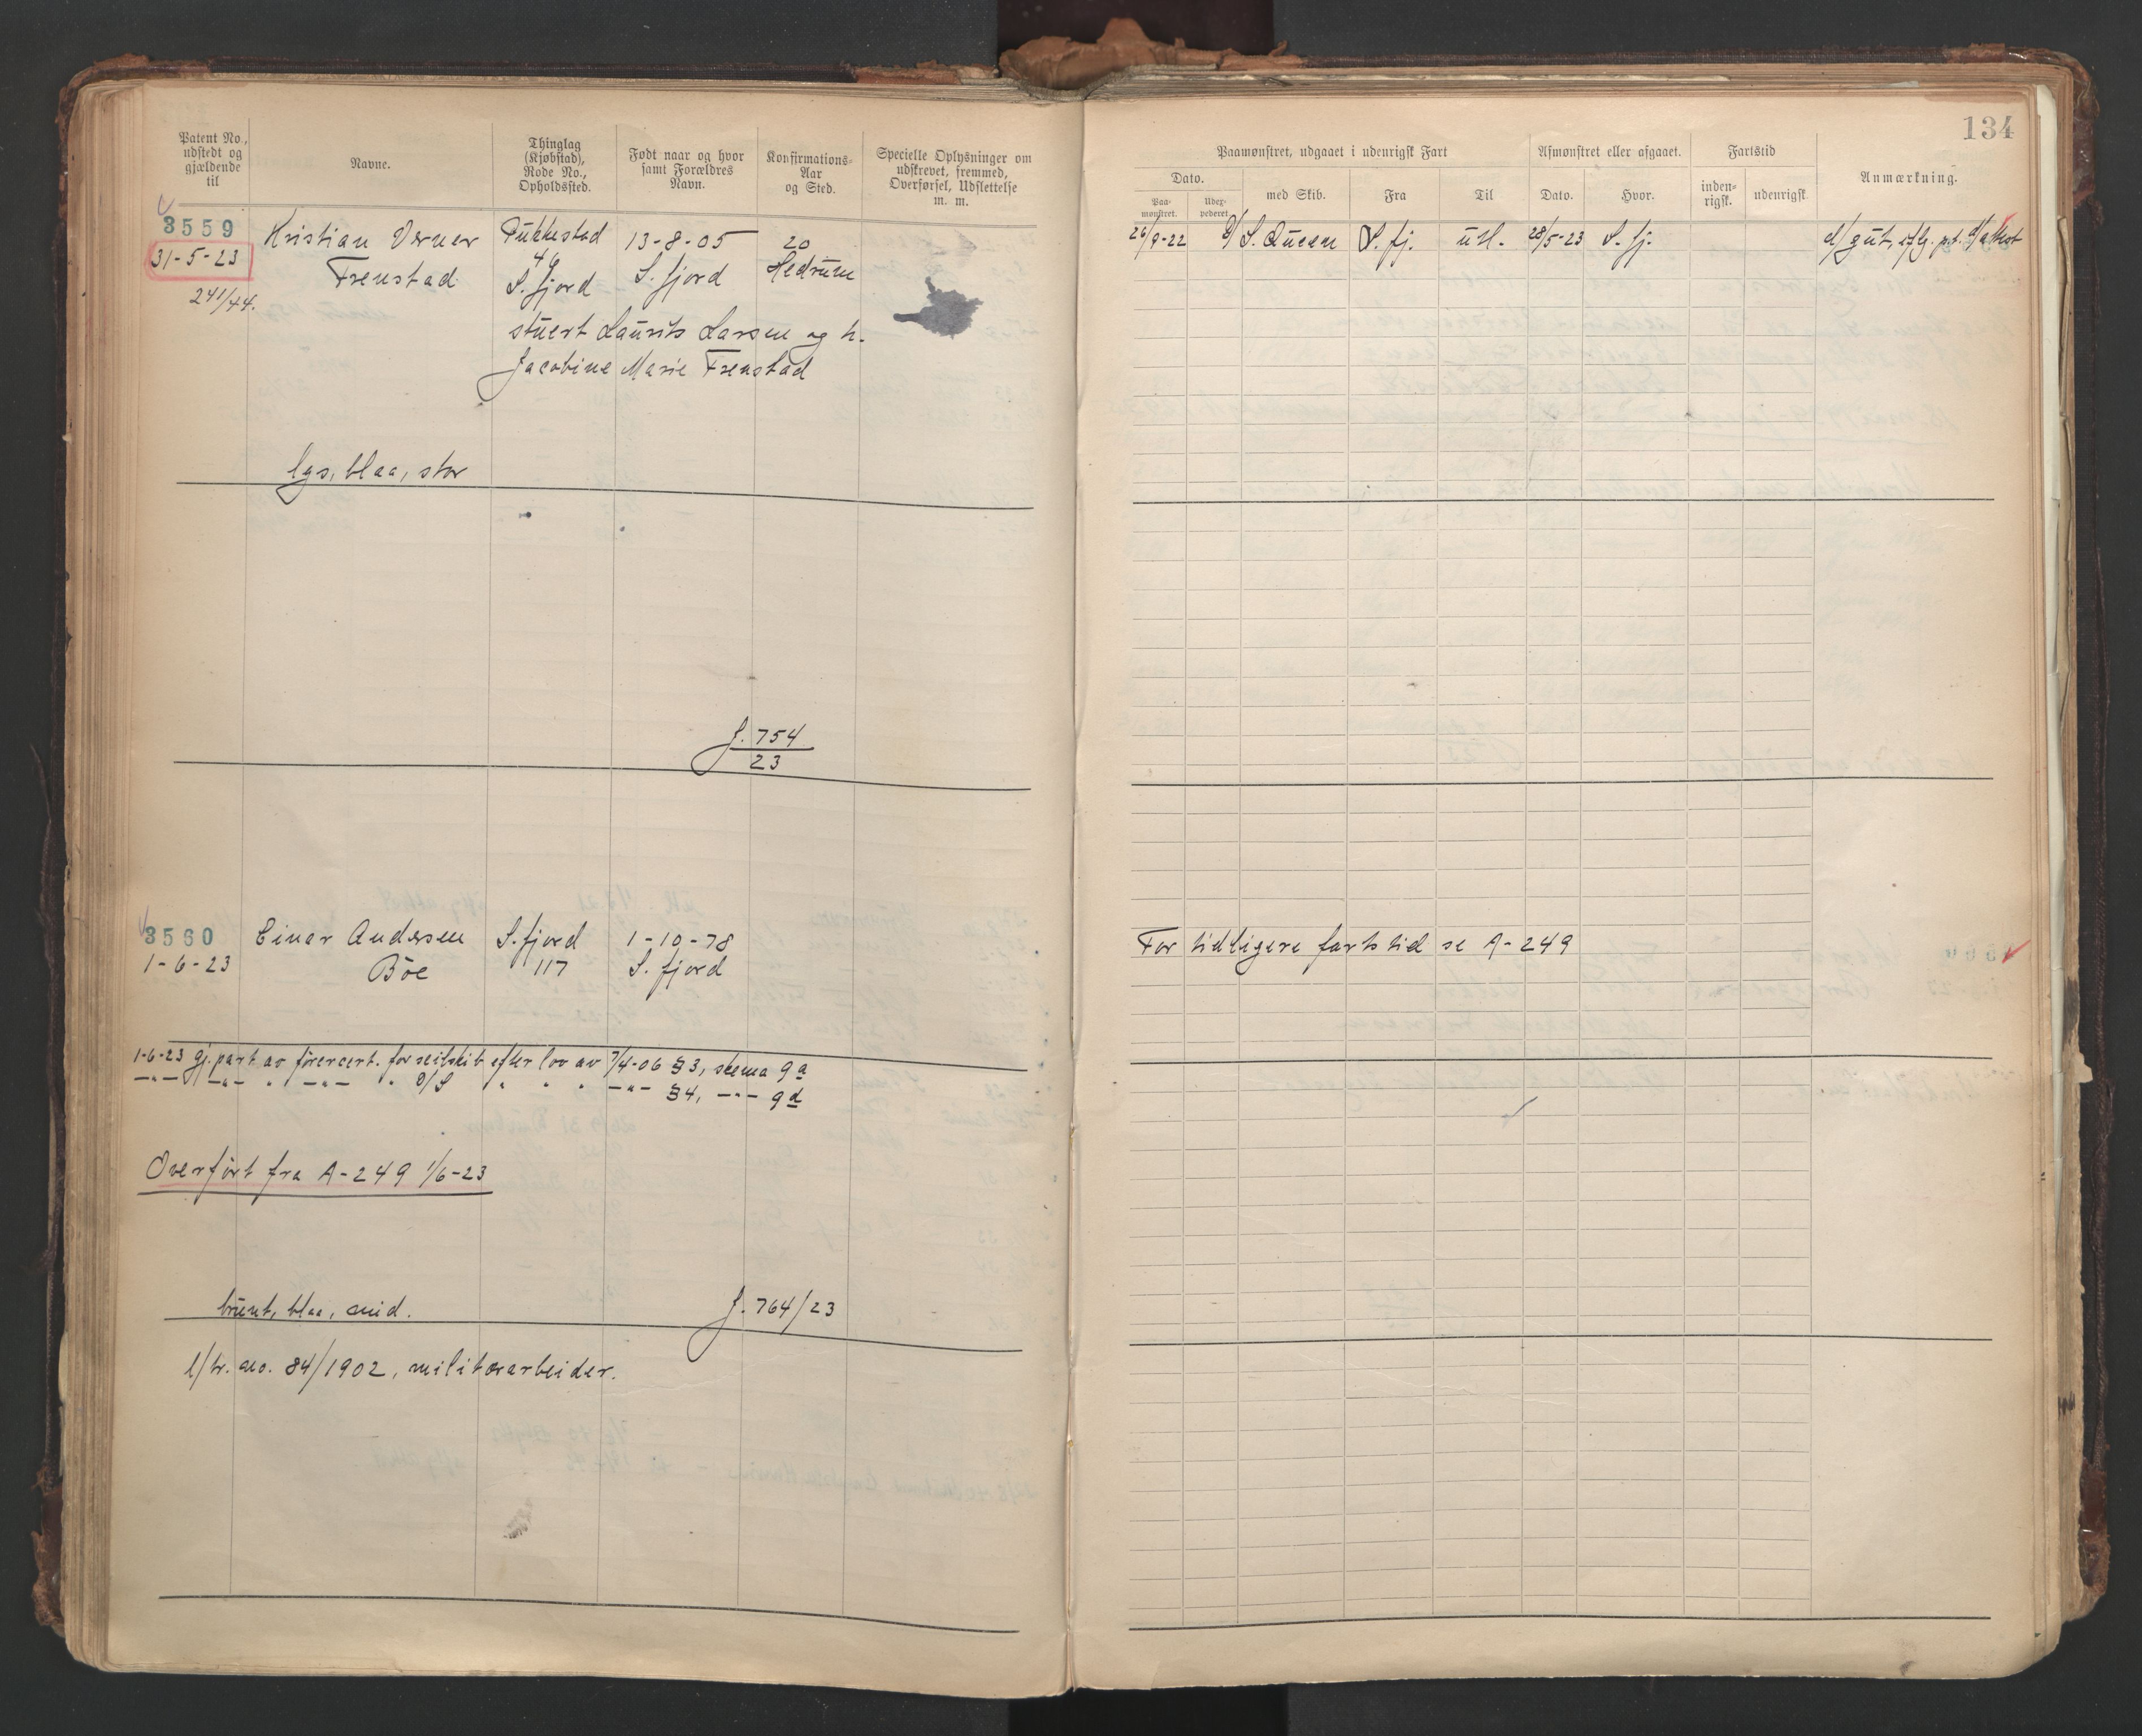 134
Patent No.,
udstedt og
gjældende
til
Navne.
Thinglag
(Kjøbstad),
Rode No.,
Opholdssted.
Født naar og hvor
samt Forældres
Navn.
Konfirmations-
Aar
og Sted.
Specielle Oplysninger om
udskrevet, fremmed,
Overførsel, Udslettelse
m. m.
3559
31-5-23
241/44.
Kristian Verner
Frenstad
Pukkestad
46
S. fjord
13-8-05
S. fjord
20
Hedrum
stuert Laurits Larsen og h.
Jacobine Marie Frenstad
lys, blaa, stor
J. 754
23
3560
1-6-23
Einar Andersen
Böe
S. fjord
117
1-10-78
S. fjord
1-6-23 gj. part av förercert. for seilskib efter lov av 7/4-06 §3, skema 9a
—"— —"— " —"— " D/S " " " —"— §4, —"— 9d
Overfört fra A-249 1/6-23
brunt, blaa, mid.
J. 764/23
l/nr. 84/1902, militærarbeider.
Paamønstret, udgaaet i udenrigsk Fart
Afmønstret eller afgaaet.
Fartstid
Anmærkning.
Dato.
med Skib.
Fra
Til
Dato.
Hvor.
inden-
rigsk.
udenrigsk
Paa-
mønstret.
Udex-
pederet.
26/9-22 D/S. Queen S. fj. utl. 28/5-23 S. fj. d/gut, iflg.
For tidligere fartstid se A-249